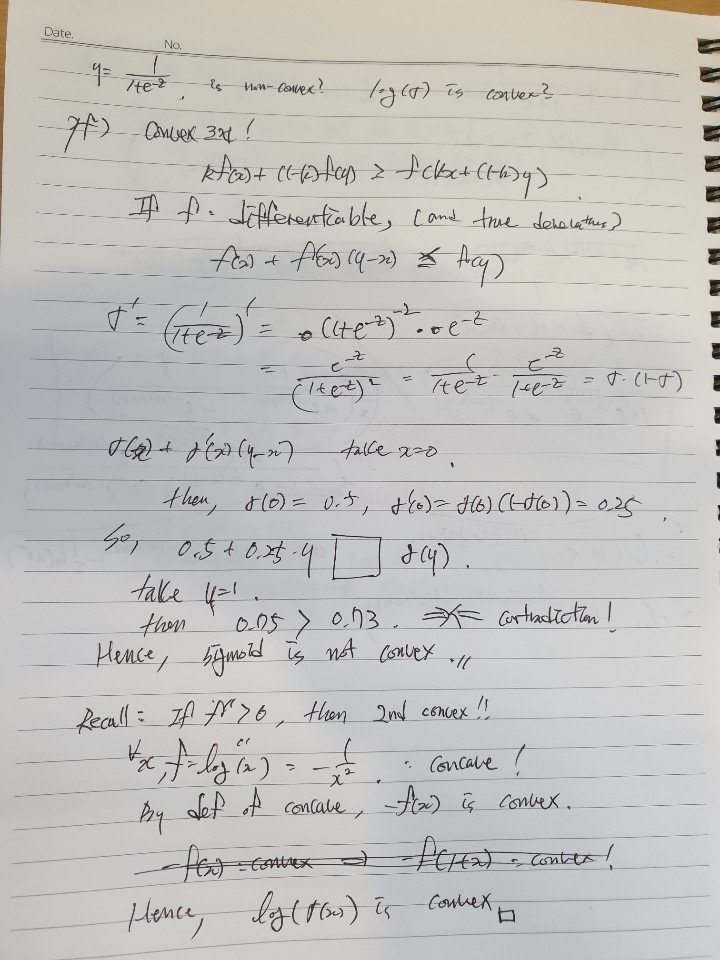 Date.
No.
y = 1/(1+e^-z), is non-convex? log(σ) is convex?
pf) Convex 조건!
kf(x) + (1-k)f(y) ≥ f(kx + (1-k)y)
If f: differentiable, (and true
f(x) + f'(x)(y-x) ≤ f(y)
σ' = (1/(1+e^-z))' = (1+e^-z)^-2 · e^-z
= e^-z/(1+e^-z)^2 = 1/(1+e^-z) · e^-z/(1+e^-z) = σ·(1-σ)
σ(x) + σ'(x)(y-x) take x=0.
then, σ(0) = 0.5, σ'(0) = σ(0)(1-σ(0)) = 0.25.
So, 0.5 + 0.25·y □ σ(y).
take y=1.
then 0.75 > 0.73. ⇒⇐ contradiction!
Hence, sigmoid is not convex.//
Recall: If f'' > 0, then 2nd convex!!
∀x, f = log''(x) = -1/x^2. : concave!
By def of concave, -f(x) is convex.
-f(x) = convex ⇒ -f(1+x) = convex!
Hence, log(σ(x)) is convex □